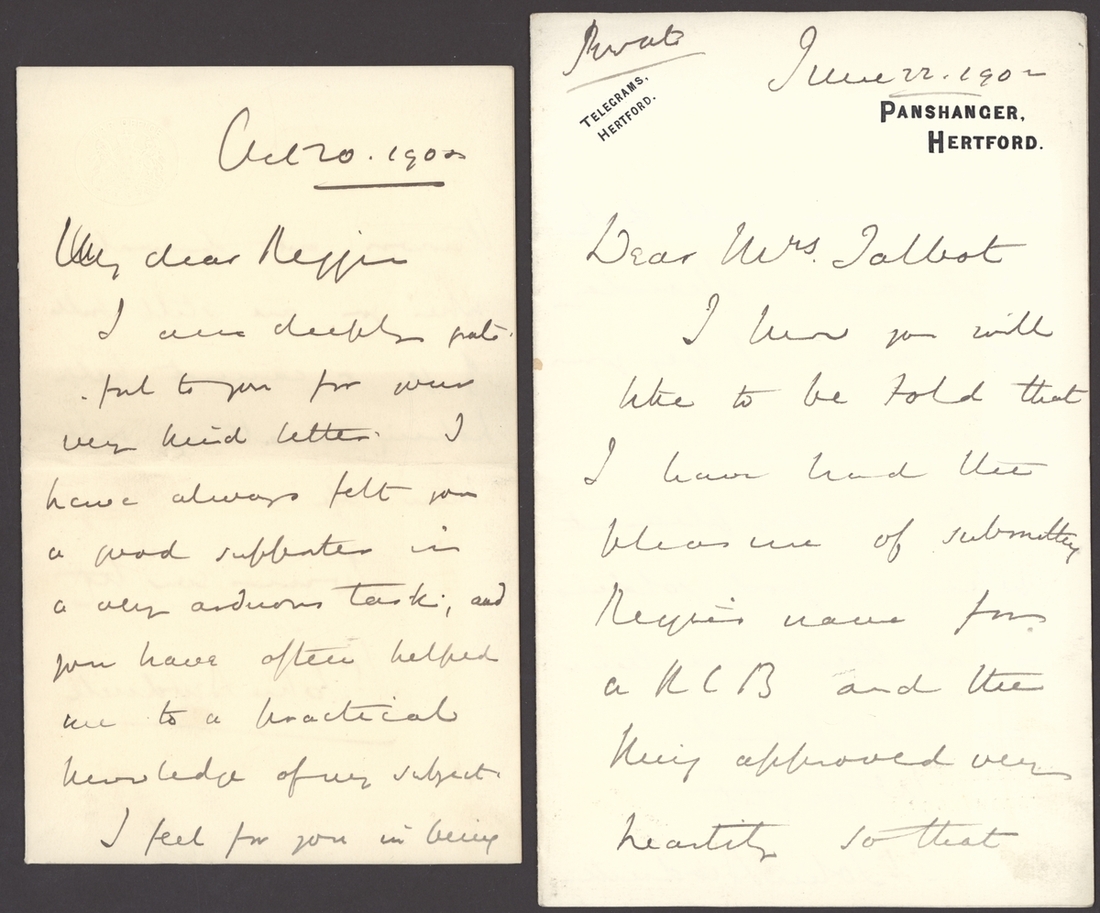 Oct 20. 1902
My dear Reggie
I am deeply grate-
-ful to you for your
very kind letter. I
have always felt you
a good supporter in
a very arduous task, and
you have often helped
me to a practical
knowledge of my subject.
I feel for you in being
Private
TELEGRAMS,
HERTFORD.
June 22. 1902
PANSHANGER,
HERTFORD.
Dear Mrs. Talbot
I know you will
like to be told that
I have had the
pleasure of submitting
Reggie's name for
a KCB and the
King approved very
heartily so that